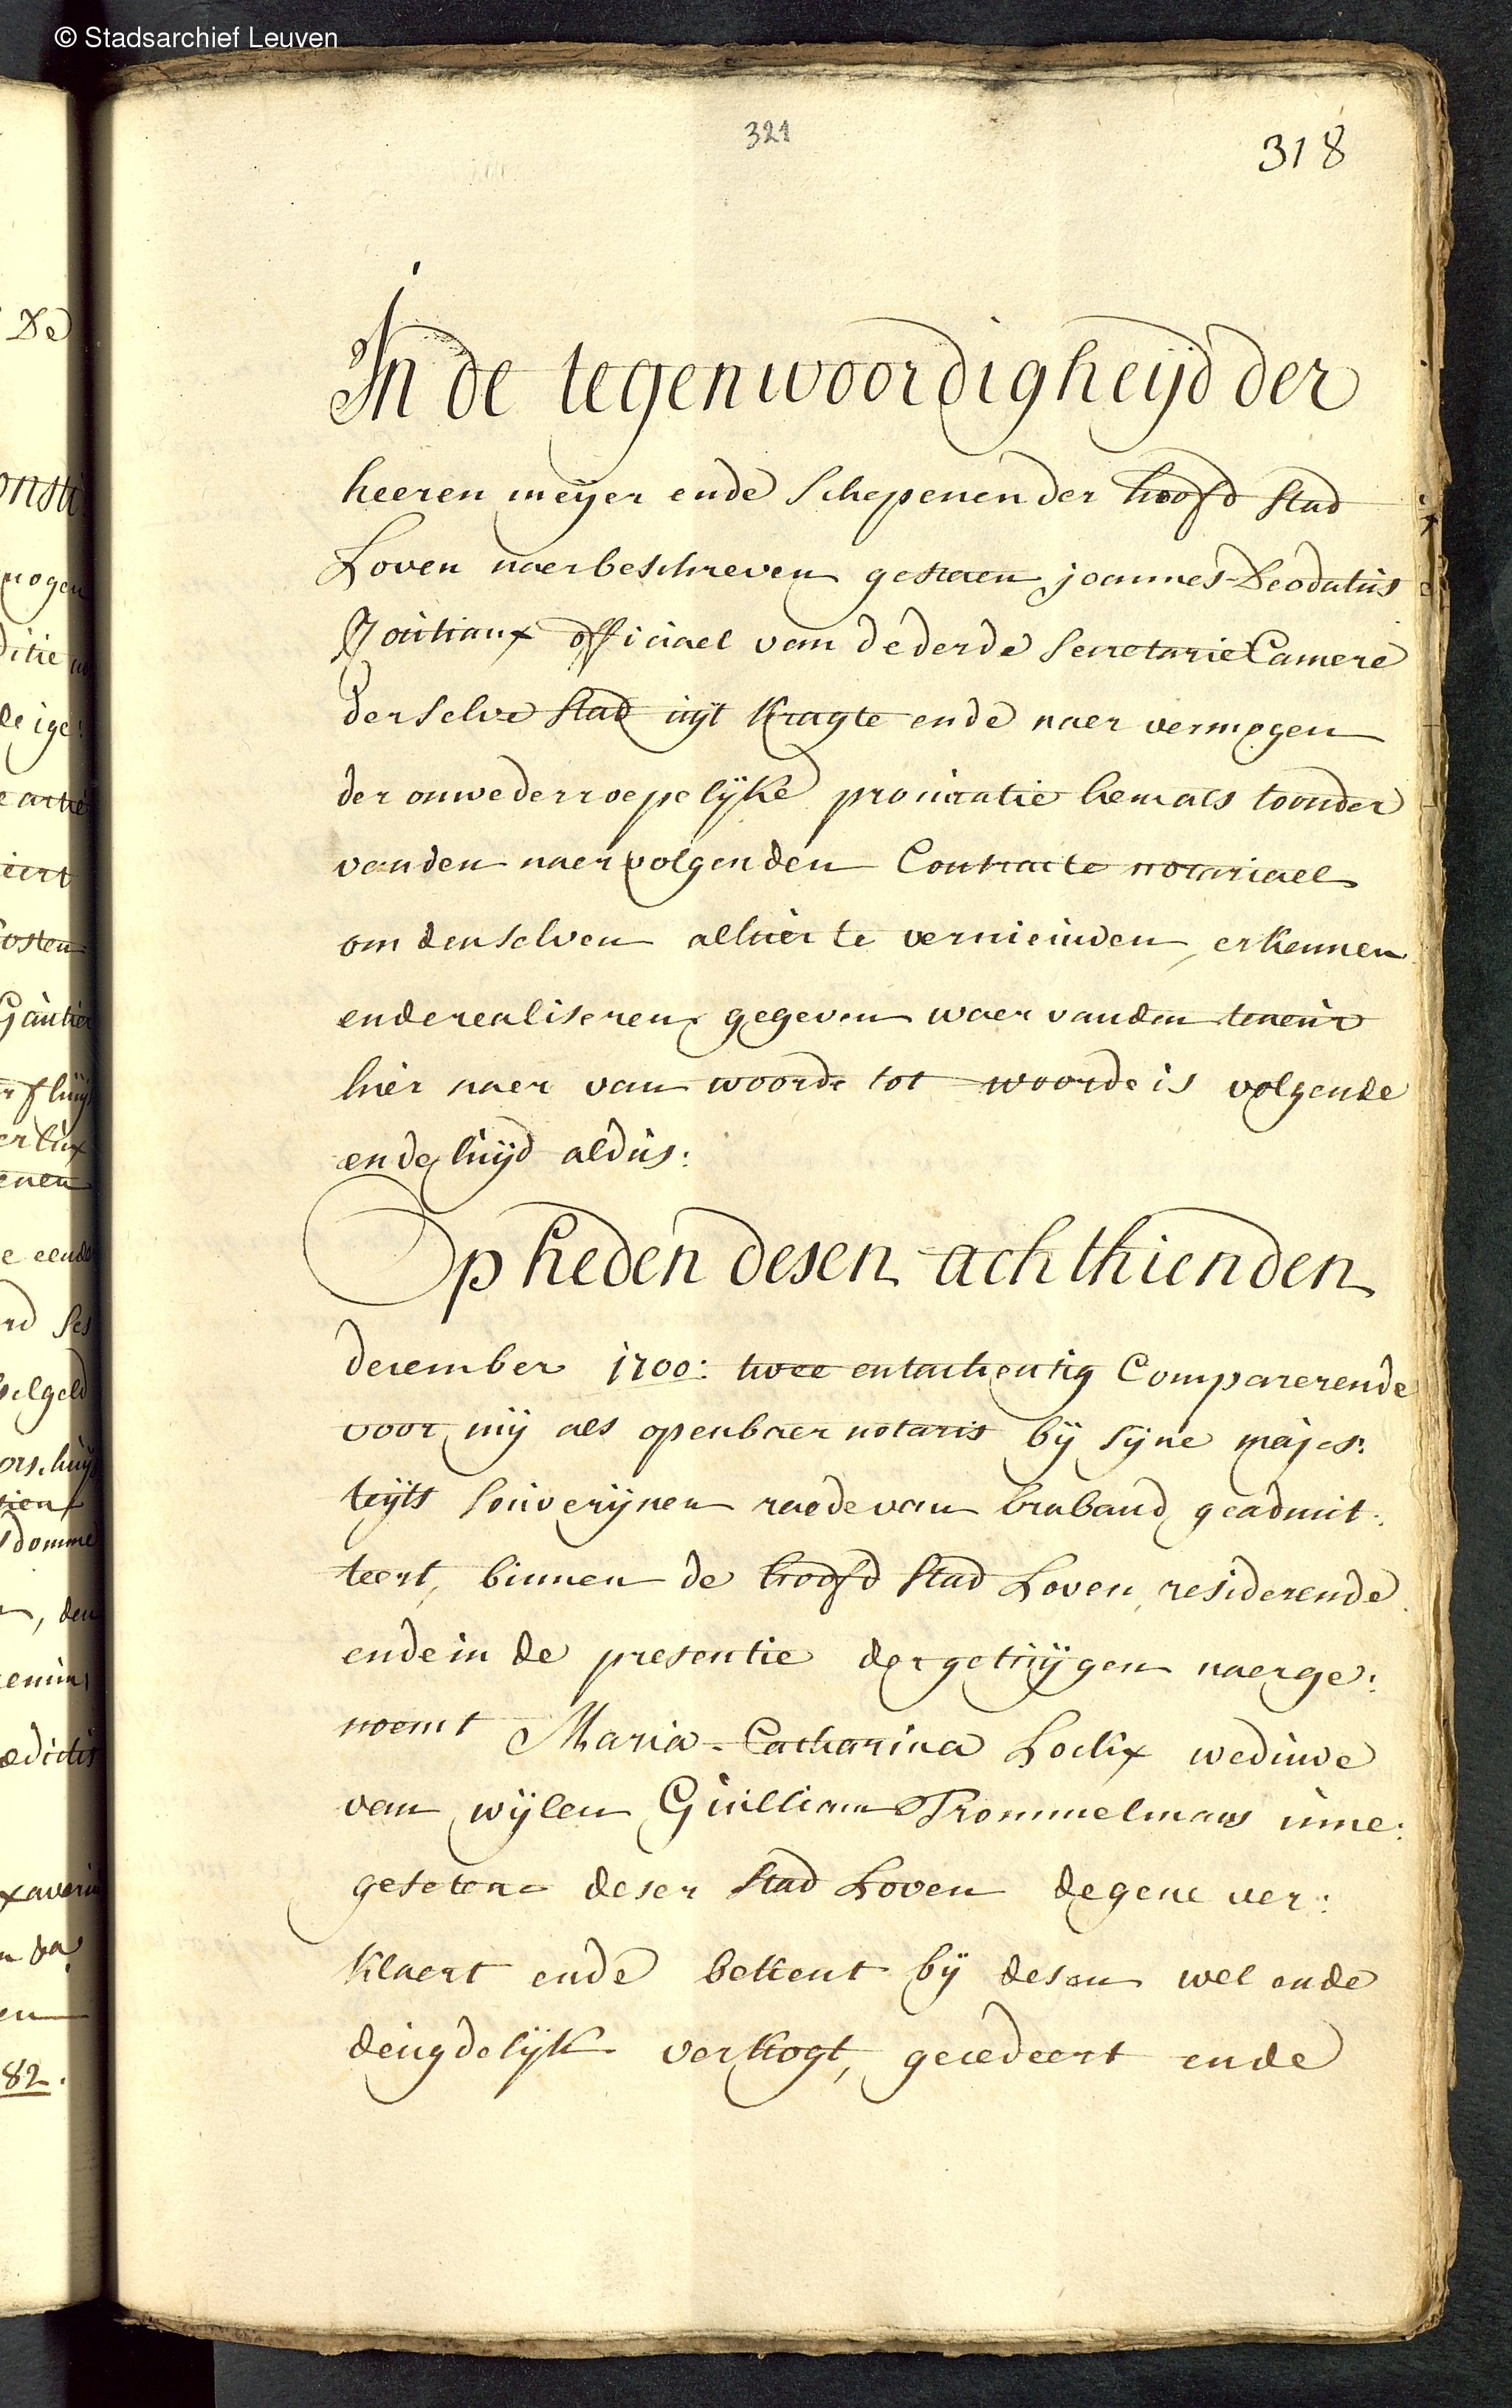 © Stadsarchief Leuven
321
318
In de tegenwoordigheijd der
heeren meyer ende schepenen der hoofd stad
Loven naerbeschreven gestaen joannes-Deodatus
officiael van de derde secretarie Camere
der selve stad uijt kragte ende naer vermogen
der onwederroepelijke procuratie hem als toonder
van den naervolgenden Contracte notariael
om den selven alhier te vernieuwden, erkennen
ende realiseren gegeven waer van den teneur
hier naer van woorde tot woorde is volgende
ende luijd aldus:
Op heden desen achthienden
december 1700: twee entachentig Comparerende
voor mij als openbaer notaris bij sijne majes:
teijts souverijnen raede van braband geadmit:
teert, binnen de hoofd stad Loven residerende
ende in de presentie der getuijgen naerge:
noemt Maria-Catharina Lockx weduwe
van wijlen Guilliam Trommelmans inne:
gesetene deser stad Loven degene ver:
klaert ende bekent bij desen wel ende
deugdelijk verkogt, gecedeert ende
De
82.